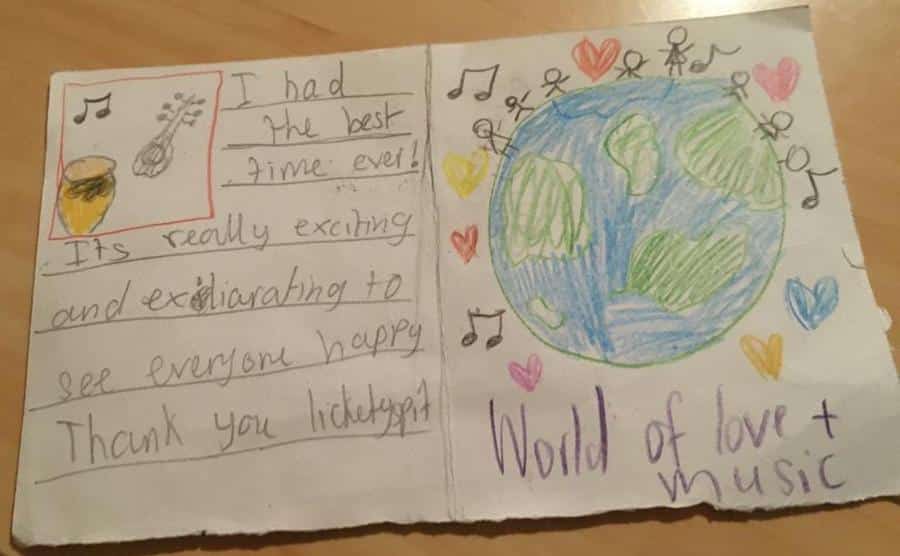 I had
the best
time ever!
Its really exciting
and exdiarating to
see everyone happy
Thank you licketyspit
World of love +
music